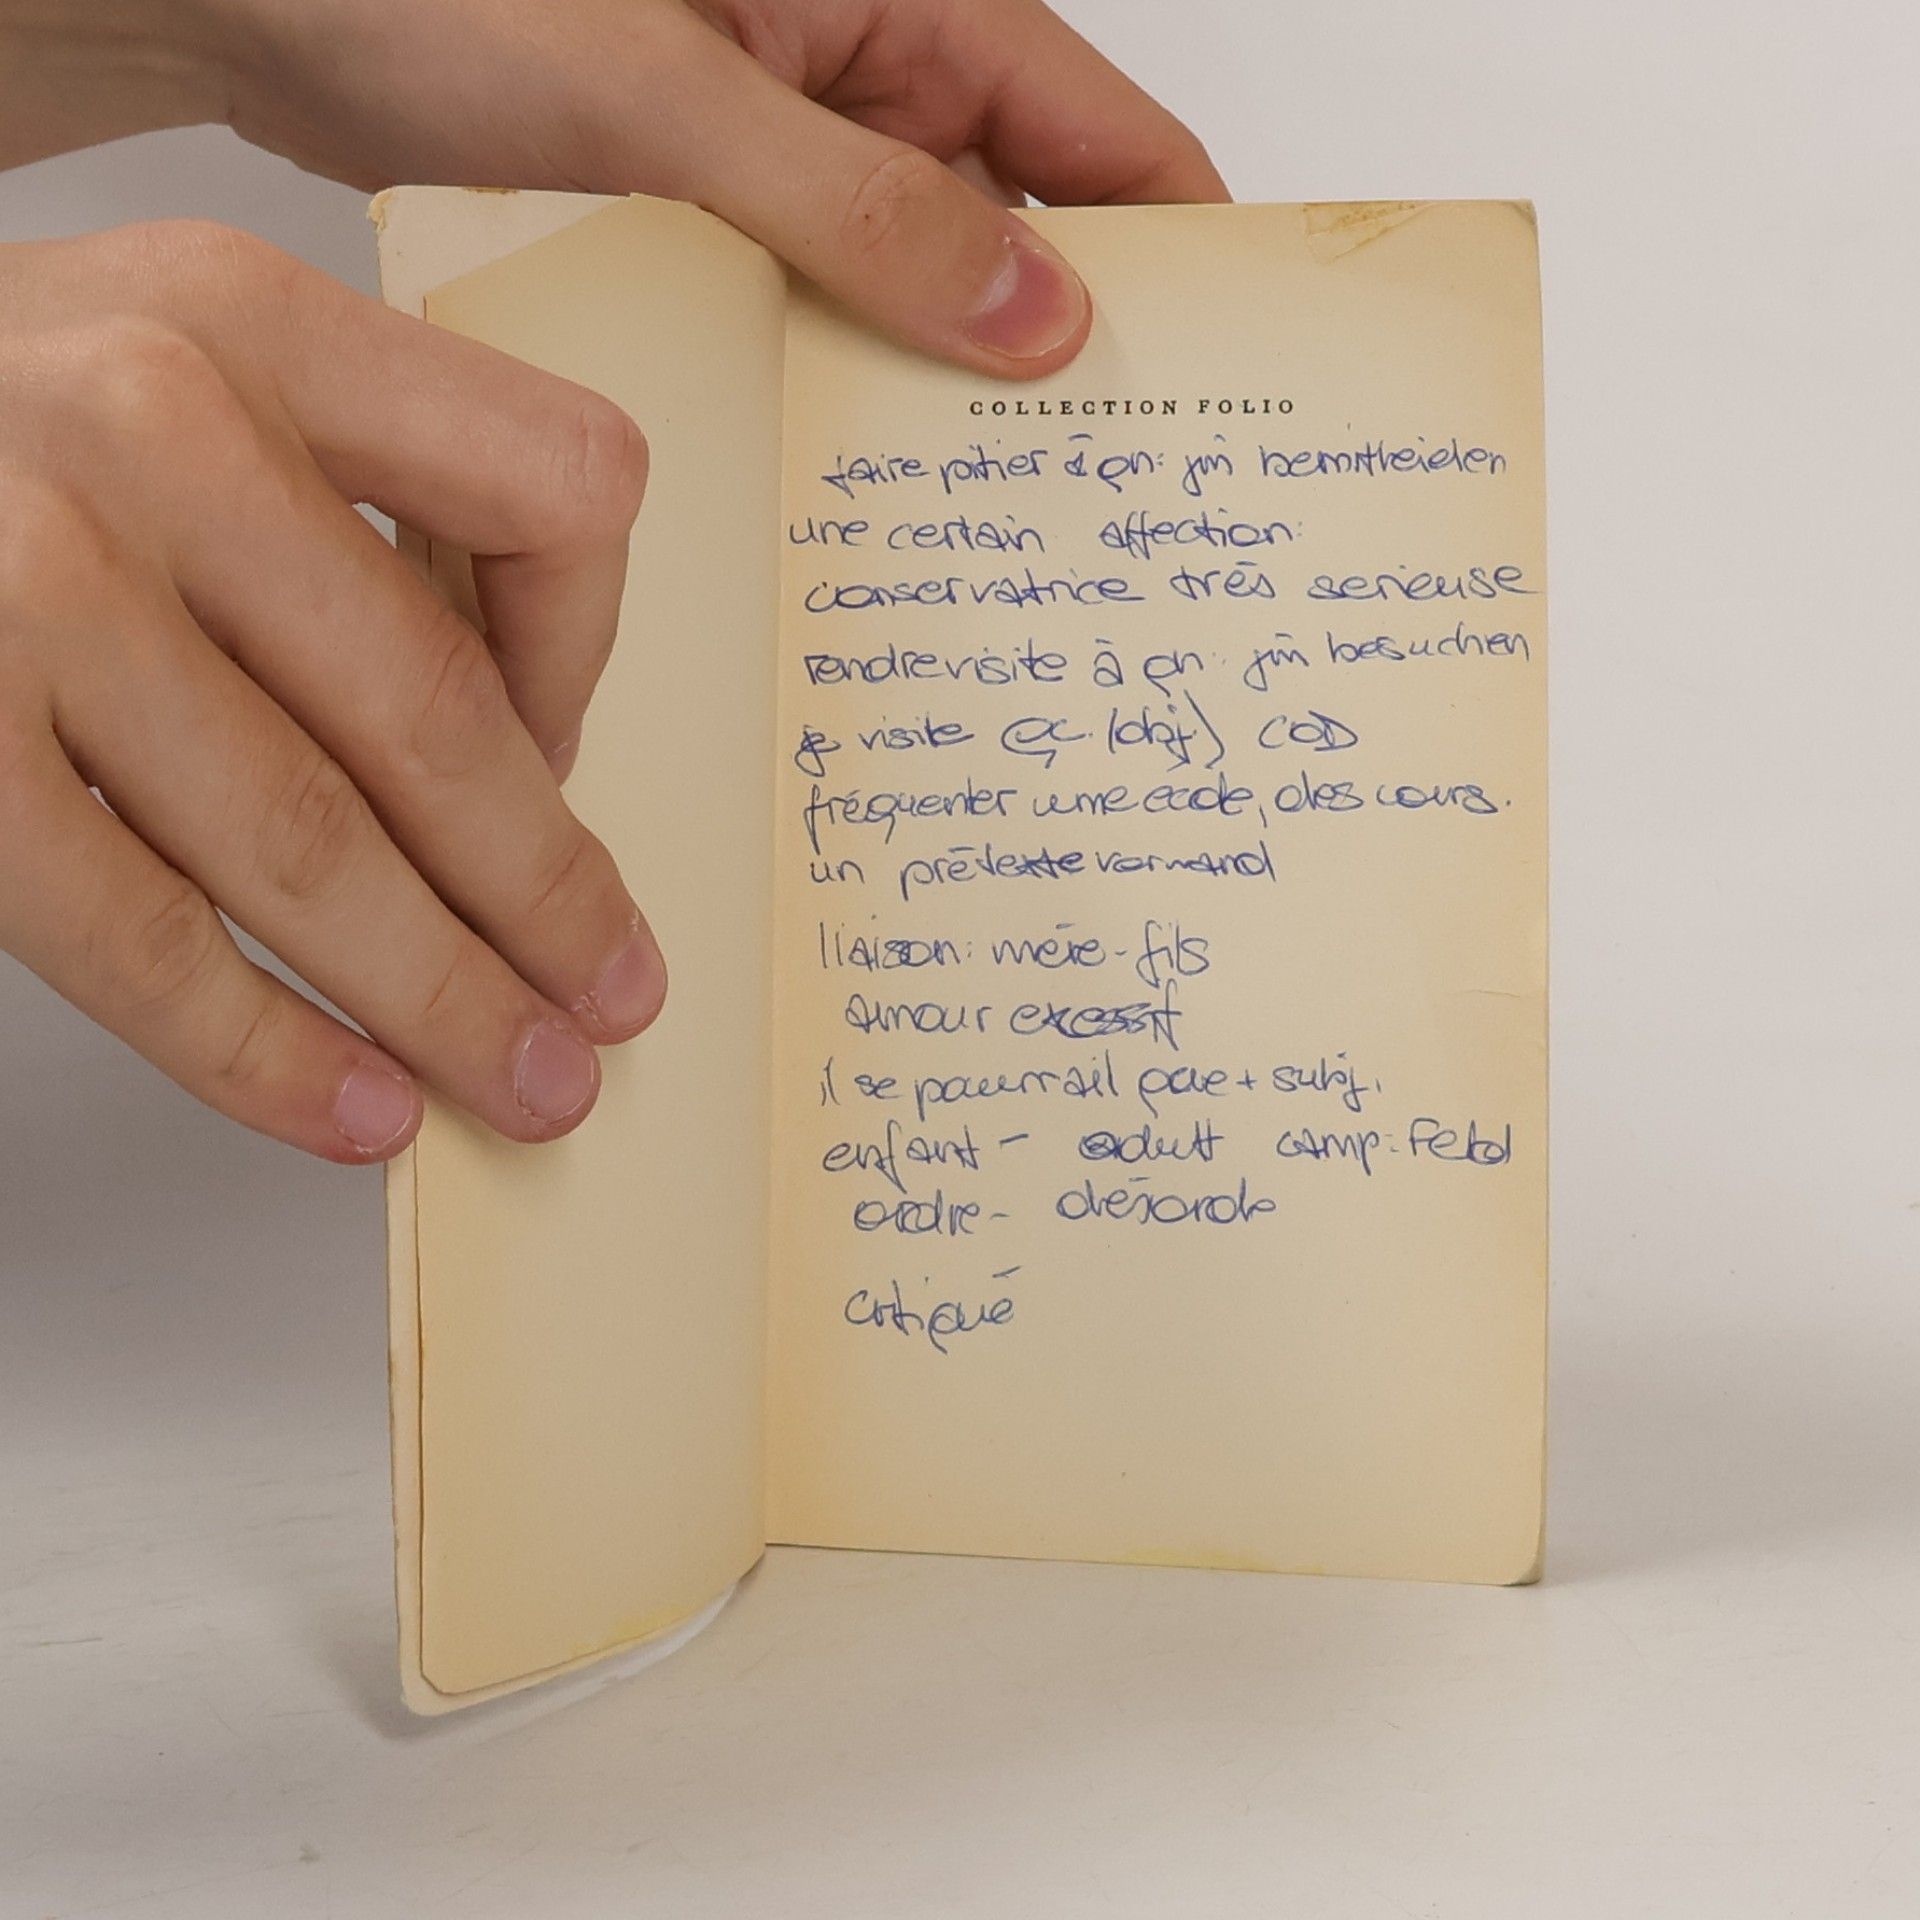 COLLECTION FOLIO
faire pitier à qn: jm bemitleiden
une certain affection:
conservatrice très serieuse
rendre visite à qn: jm besuchen
je visite qc. (obj.) COD
fréquenter une école, des cours.
un prétexte vorwand
liaison: mère-fils
amour excessif
il se pourrait que + subj.
enfant - adult camp: Feld
ordre - désordre
critiqué